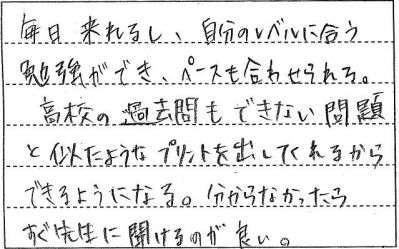 毎日来れるし、自分のレベルに合う
勉強ができ、ペースも合わせられる。
高校の過去問もできない問題
と似たようなプリントを出してくれるから
できるようになる。分からなかったら
すぐ先生に聞けるのが良い。